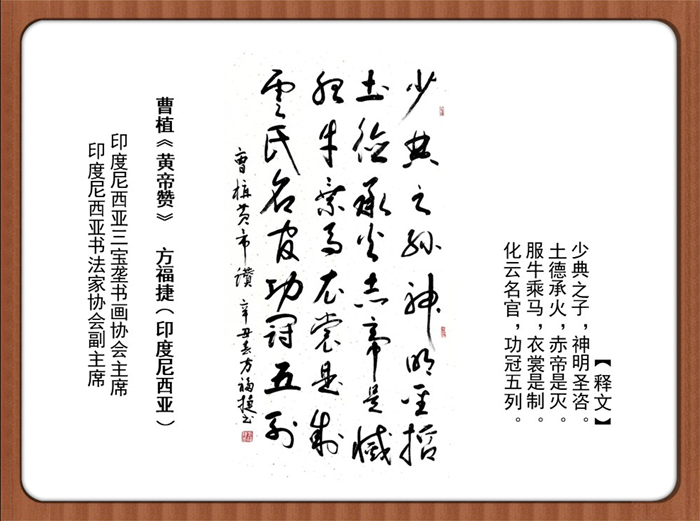 【释文】
少典之子，神明圣咨。
土德承火，赤帝是灭。
服牛乘马，衣裳是制。
化云名官，功冠五列。
少典之孫神明圣哲
土德承火赤帝是滅
服牛乘马衣裳是制
雲氏名官功冠五列
曹植黄帝讚 辛丑春方福捷书
曹植《黄帝赞》 方福捷（印度尼西亚）
印度尼西亚三宝垄书画协会主席
印度尼西亚书法家协会副主席